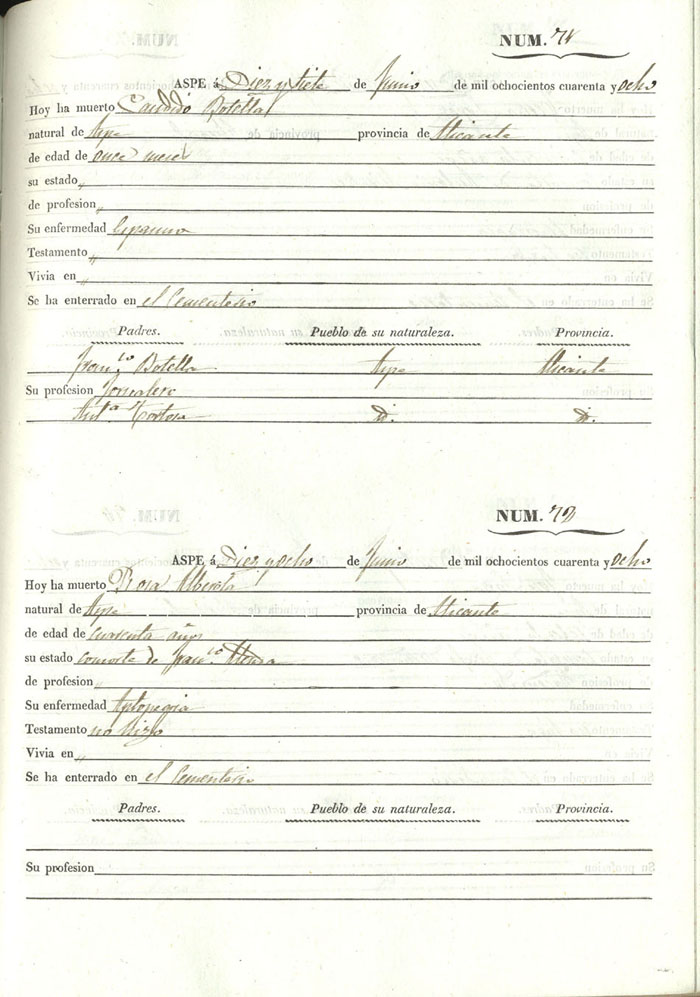 NUM. 71
ASPE á Diez y siete de Junio de mil ochocientos cuarenta y ocho
Hoy ha muerto Candido Botella
natural de Aspe provincia de Alicante
de edad de once meses
su estado „
de profesion „
Su enfermedad Espasmo
Testamento „
Vivia en „
Se ha enterrado en el Cementerio
Padres. Pueblo de su naturaleza. Provincia.
Fran.co Botella Aspe Alicante
Su profesion Jornalero
Ant.a Cortes id. id.
NUM. 72
ASPE á Diez y ocho de Junio de mil ochocientos cuarenta y ocho
Hoy ha muerto Rosa Alberola
natural de Aspe provincia de Alicante
de edad de cuarenta años
su estado consorte de Fran.co
de profesion „
Su enfermedad
Testamento no hizo
Vivia en „
Se ha enterrado en el Cementerio
Padres. Pueblo de su naturaleza. Provincia.
Su profesion